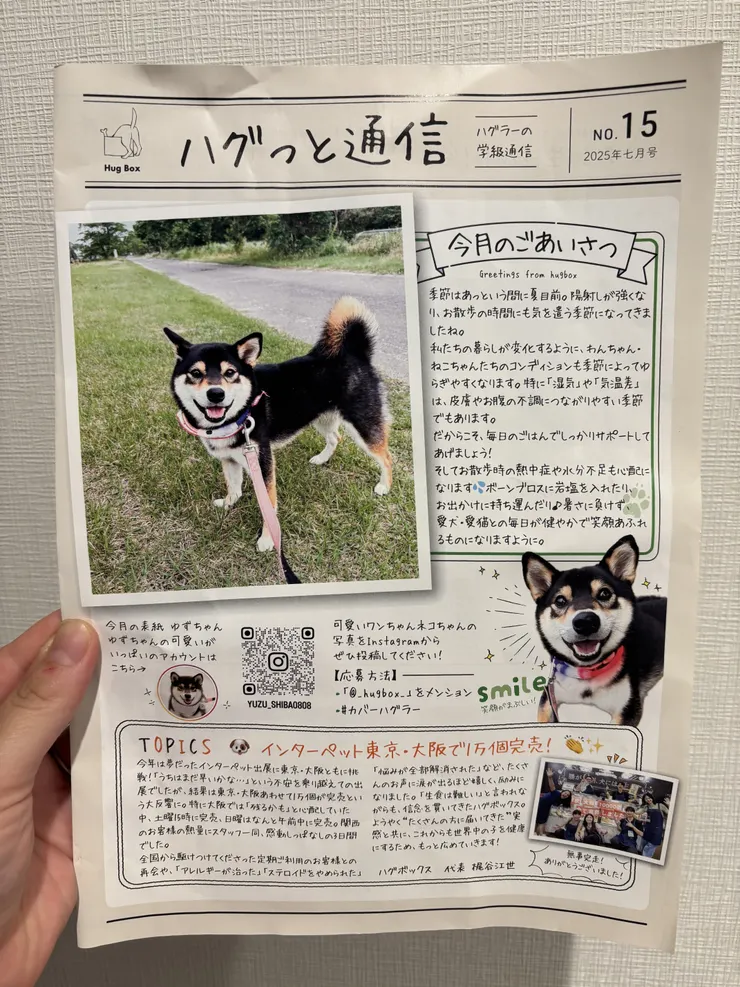 Hug Box
ハグっと通信
ハグラーの
学級通信
NO.15
2025年七月号
今月のごあいさつ
Greetings from hugbox
季節はあっという間に夏目前。陽射しが強くな
り、お散歩の時間にも気を遣う季節になってきま
したね。
私たちの暮らしが変化するように、わんちゃん・
ねこちゃんたちのコンディションも季節によってゆ
らぎやすくなります。特に「湿気」や「気温差」
は、皮膚やお腹の不調につながりやすい季節
でもあります。
だからこそ、毎日のごはんでしっかりサポートして
あげましょう!
そしてお散歩時の熱中症や水分不足も心配に
なります💦ボーンブロスに岩塩を入れたり、
お出かけに持ち運んだり♪暑さに負けず
愛犬・愛猫との毎日が健やかで笑顔あふれ
るものになりますように。
今月の表紙 ゆずちゃん
ゆずちゃんの可愛いが
いっぱいのアカウントは
こちら→
YUZU_SHIBA0808
可愛いワンちゃんネコちゃんの
写真をInstagramから
ぜひ投稿してください!
【応募方法】
・「@_hugbox_」をメンション
・#カバーハグラー
smile
笑顔がまぶしい!
TOPICS 🐶 インターペット東京・大阪で1万個完売!👏✨
今年は夢だったインターペット出展に東京・大阪ともに挑
戦!「うちはまだ早いかな…」という不安を乗り越えての出
展でしたが、結果は東京・大阪あわせて1万個が完売とい
う大反響に。特に大阪では「残るかも」と心配していた
中、土曜15時に完売、日曜はなんと午前中に完売。関西
のお客様の熱量にスタッフ一同、感動しっぱなしの3日間
でした。
全国から駆けつけてくださった定期ご利用のお客様との
再会や、「アレルギーが治った」「ステロイドをやめられた」
「悩みが全部解消された」など、たくさ
んのお声に涙が出るほど嬉しく、励みに
なりました。「生食は難しい」と言われな
がらも、信念を貫いてきたハグボックス。
ようやく"たくさんの方に届いてきた"実
感と共に、これからも世界中の子を健康
にするため、もっと広めていきます!
ハグボックス 代表 梶谷江世
無事完走!
ありがとうございました!